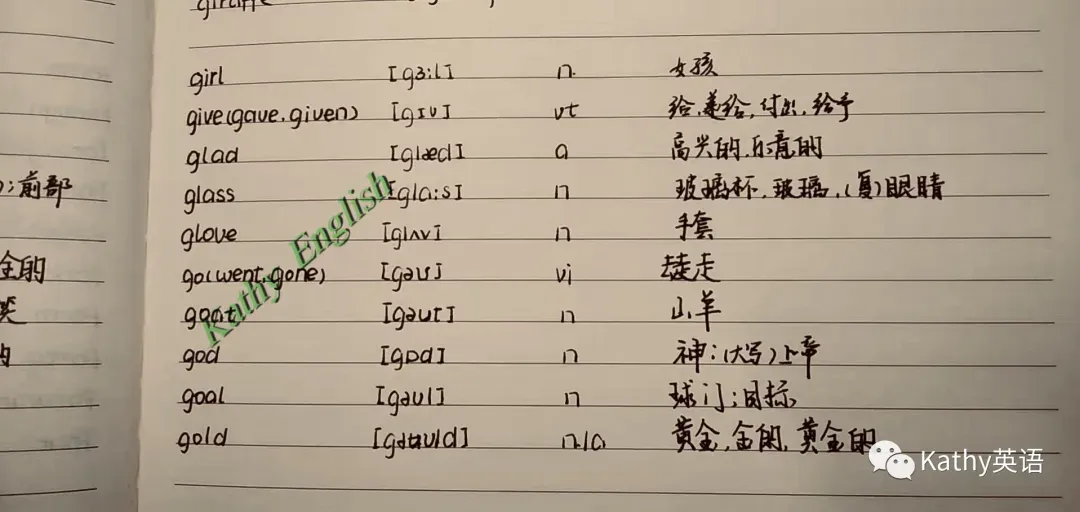 ):前部
全的
笑
的
girl [gɜ:l] n. 女孩
give(gave.given) [gɪv] vt 给,递给,付出,给予
glad [glæd] a 高兴的,乐意的
glass [glɑ:s] n 玻璃杯,玻璃,(复)眼睛
glove [glʌv] n 手套
go(went.gone) [gəʊ] vi 去走
goat [gəʊt] n 山羊
god [gɒd] n 神:(大写)上帝
goal [gəʊl] n 球门;目标
gold [gəʊld] n/a 黄金,金的,黄金的
Kathy English
Kathy英语